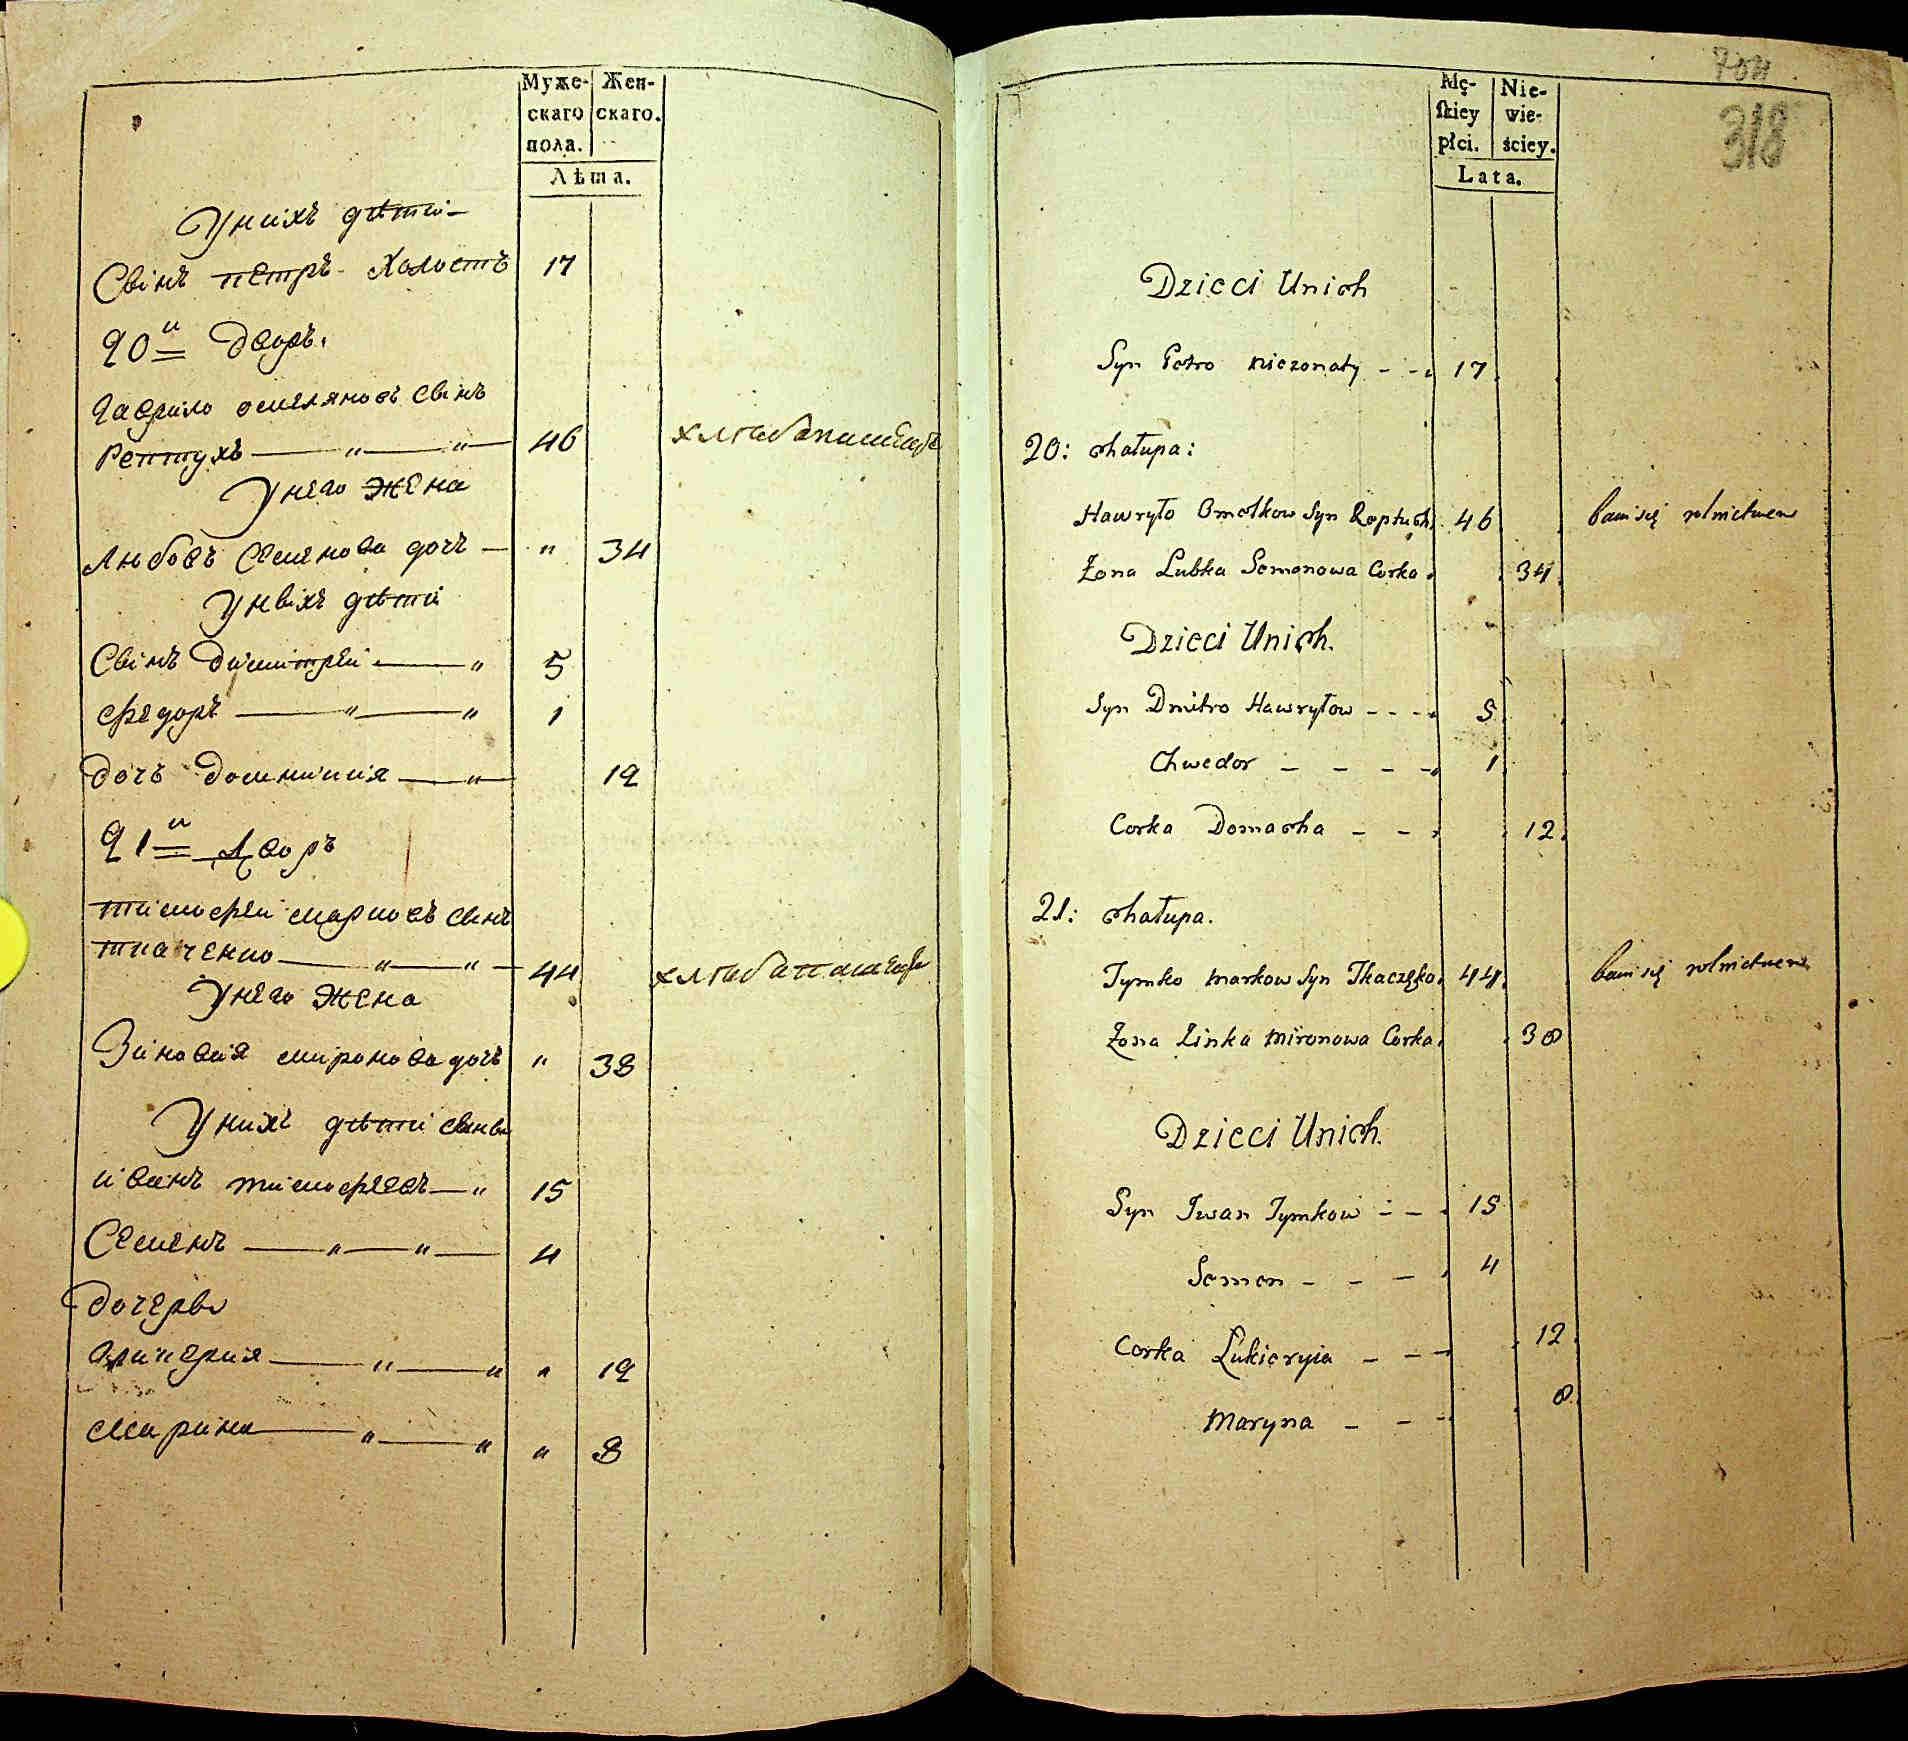 Муже-
скаго
пола.
Жен-
скаго.
Лѣта.
Унихъ дѣти
Сынъ петръ Холостъ 17
20й Дворъ.
Гаврило омеляновъ сынъ
Рептухъ — " — " — 46 хлѣбопашецъ
Унего жена
Любовъ Семенова дочъ — " 34
Унихъ дѣти
Сынъ Димитрей — " 5
Федоръ — " — " 1
Дочъ Домникия — " — 12
21й Дворъ
тимофей марковъ сынъ
ткаченко — " — " — 44 хлѣбопашецъ
Унего жена
Зиновия миронова дочъ " 38
Унихъ дѣти сыны
иванъ тимофеевъ — " 15
Семенъ — " — " — 4
Дочеры
— " — " " 12
Марина — " — " " 8
704
318
Mę-
ſkiey
płci.
Nie-
wie-
ściey.
Lata.
Dzieci Unich
Syn Petro niezonaty - - 17
20: chałupa:
Hawryło Omelkow Syn Reptuch 46 bawi się rolnictwem
Żona Lubka Semenowa Corka 34
Dzieci Unich.
Syn Dmitro Hawryłow - - - - 5
Chwedor - - - - 1
Corka Domacha - - 12
21: chałupa.
Tymko Markow Syn Tkaczęko 44 bawi się rolnictwem
Żona Zinka Mironowa Corka 38
Dzieci Unich.
Syn Iwan Tymkow - - 15
Semen - - - 4
Corka Łukieryia - - - 12
Maryna - - - 8